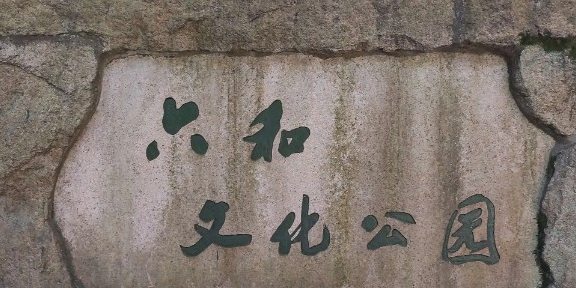 六和
文化公园